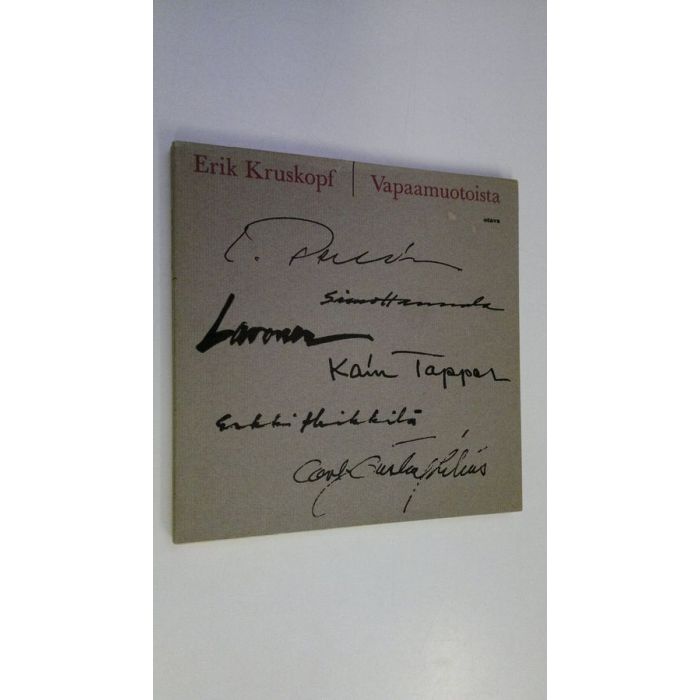 Erik Kruskopf | Vapaamuotoista
otava
Simo Hannula
Lavonen
Kain Tapper
Erkki Heikkilä
Carl-Gustaf Lilius